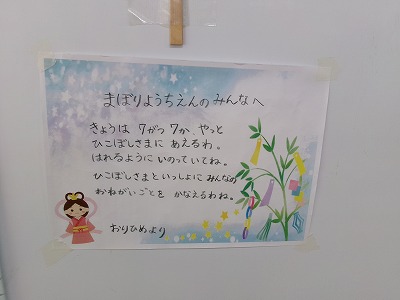 まぼりようちえんのみんなへ
きょうは 7がつ 7か、やっと
ひこぼしさまに あえるわ。
はれるように いのっていてね。
ひこぼしさまといっしょに みんなの
おねがいごとを かなえるわね。
おりひめより